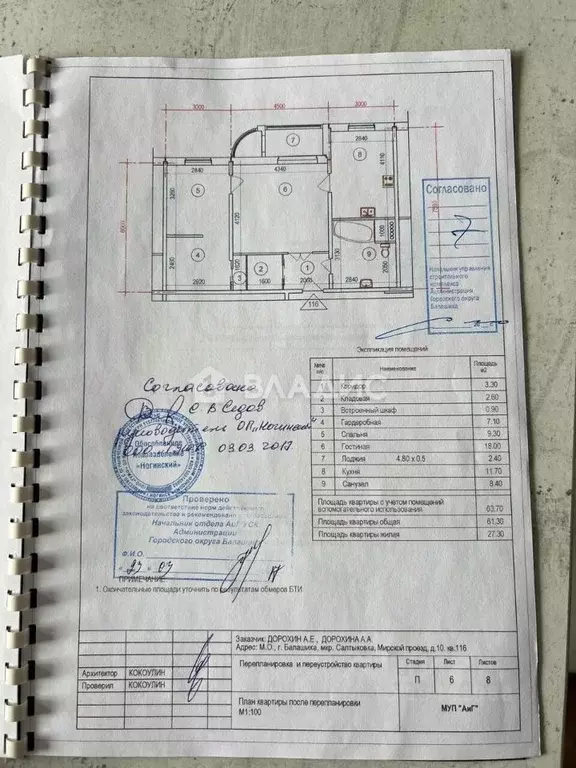 3000 4500 3000
2840 4340 2840
7
8
5
6
4110
3260
4120
6000
Согласовано
7
Начальник управления
строительного
комплекса
Администрации
Городского округа
Балашиха
4
2400
2920
3
2
1
9
1600
2840
2050
1000
116
ВЛАДИС
Экспликация помещений
Наименование
Площадь
м2
1 Коридор 3.30
2 Кладовая 2.60
3 Встроенный шкаф 0.90
4 Гардеробная 7.10
5 Спальня 9.30
6 Гостиная 18.00
7 Лоджия 4.80 x 0.5 2.40
8 Кухня 11.70
9 Санузел 8.40
Площадь квартиры с учетом помещений
вспомогательного использования 63.70
Площадь квартиры общая 61.30
Площадь квартиры жилая 27.30
Согласовано
С В Седов
руководитель ОП „Ногинский"
09.03.2017.
«Ногинский»
Проверено
на соответствие норм действующего
законодательства и рекомендовано
Начальник отдела АиГ УСК
Администрации
Городского округа Балашиха
Ф.И.О.
«23» 03 17
ПРИМЕЧАНИЕ:
1. Окончательные площади уточнить по результатам обмеров БТИ
Заказчик: ДОРОХИН А.Е., ДОРОХИНА А.А.
Адрес: М.О., г. Балашиха, мкр. Салтыковка, Мирской проезд, д.10. кв.116
Архитектор КОКОУЛИН
Проверил КОКОУЛИН
Перепланировка и переустройство квартиры
Стадия Лист Листов
П 6 8
План квартиры после перепланировки
М1:100
МУП "АиГ"